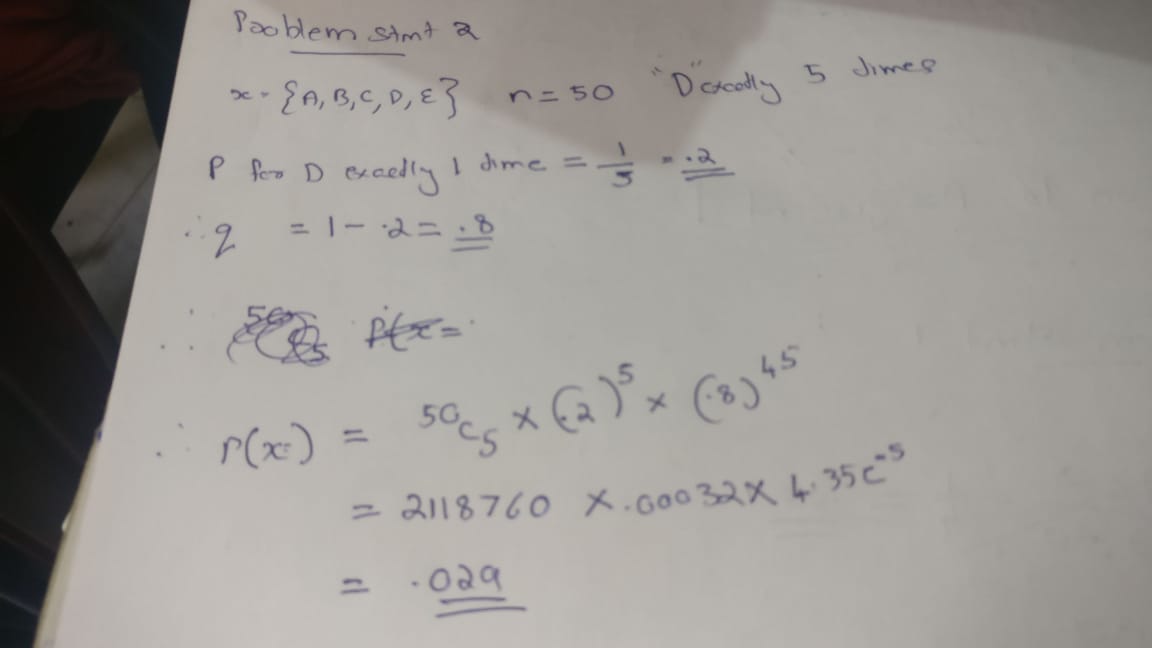 Problem stmt 2
x = {A, B, C, D, E} n = 50 "D" exactly 5 times
P for D exactly 1 time = 1/5 = .2
∴ q = 1 - .2 = .8
∴ P(x =
∴ P(x=) = 50C5 × (.2)^5 × (.8)^45
= 2118760 × .00032 × 4.35e^-5
= .029